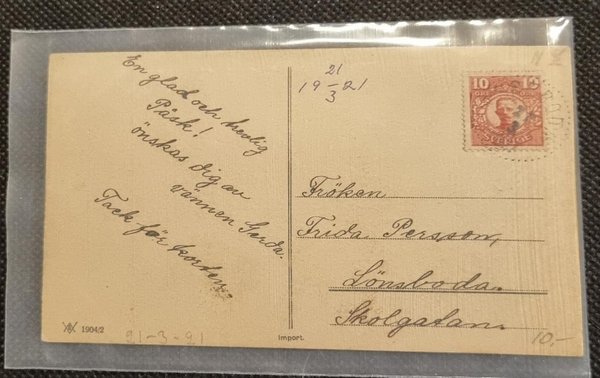 En glad och hevlig
Påsk!
önskas dig av
vännen Gerda.
Tack för korten.
21
19-21
3
10 10
SVERIGE
Fröken
Frida Persson,
Lönsboda.
Skolgatan.
1904/2
21-3-21
Import.
10.-